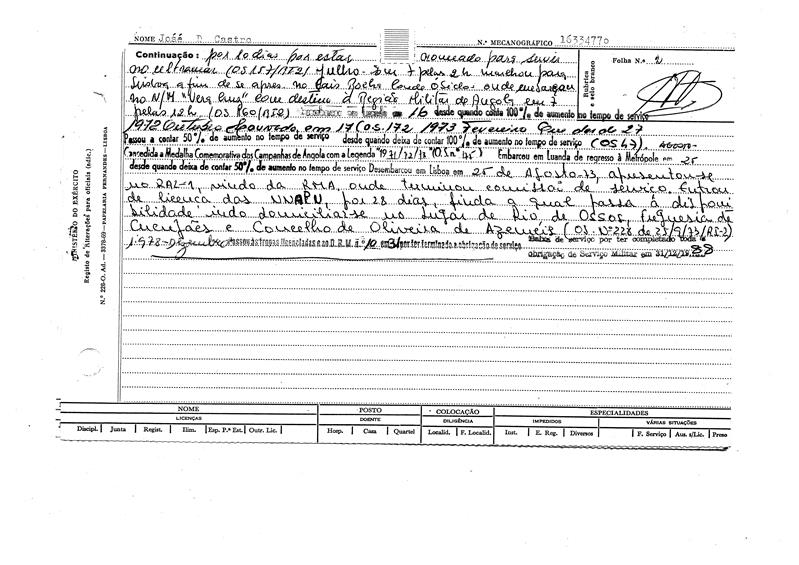 NOME José P Castro
N.º MECANOGRÁFICO 16334770
Continuação: por 10 dias por estar nomeado para servir
Folha N.º 2
no ultramar (OS 157/RI2) Julho. Em 7 pelas 2h marchou para
Lisboa a fim de se apres. no Cais Rocha Conde Óbidos onde embarcou
no N/M "Vera Cruz" com destino à Região Militar de Angola em 7
pelas 12h. (OS 160/RI2) em 16 desde quando conta 100% de aumento no tempo de serviço
Rubrica e selo branco
1972 Outubro em 17 (OS.172 1973 Fevereiro Em desde 27
Passou a contar 50% de aumento no tempo de serviço desde quando deixa de contar 100% de aumento no tempo de serviço (OS47). AGOSTO-
Concedida a Medalha Comemorativa dos Campanhas de Angola com a Legenda "1971/72/73" (O.S.nº 45) Embarcou em Luanda de regresso à Metrópole em 25
desde quando deixa de contar 50% de aumento no tempo de serviço Desembarcou em Lisboa em 25 de Agosto 73, apresentou-se
no RAL-1, vindo da RMA, onde terminou comissão de serviço. Entrou
de licença das NNAPU, por 28 dias, finda a qual passa à disponi
bilidade indo domiciliar-se no lugar de Rio de Ossos, Freguesia de
Cucujães e Concelho de Oliveira de Azemeis (OS. Nº 228 de 25/9/73/RI-2)
1.978-Dezembro Passou às tropas licenciadas e ao D.R.M. n.º 10 em 31 por ter terminado a obrigação de serviço
Baixa de serviço por ter completado toda a
obrigação de Serviço Militar em 31/12/1988
MINISTÉRIO DO EXÉRCITO
Registo de alterações para oficiais (adic.)
N.º 228-O. Ad. — 3378-69 — PAPELARIA FERNANDES — LISBOA
NOME
POSTO
COLOCAÇÃO
ESPECIALIDADES
LICENÇAS
DOENTE
DILIGÊNCIA
IMPEDIDOS
VÁRIAS SITUAÇÕES
Discipl. Junta Regist. Ilim. Esp. P.ª Est. Outr. Lic. Hosp. Casa Quartel Localid. F. Localid. Inst. E. Reg. Diversos F. Serviço Aus. s/Lic. Preso